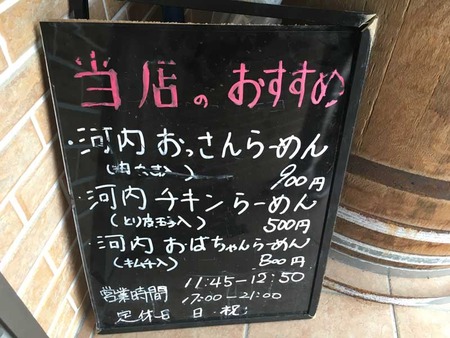 当店のおすすめ
・河内おっさんらーめん
900円
・河内チキンらーめん
(とり皮玉子入)
500円
・河内おばちゃんらーめん
(キムチ入)
800円
営業時間
11:45-12:50
17:00-21:00
定休日 日・祝